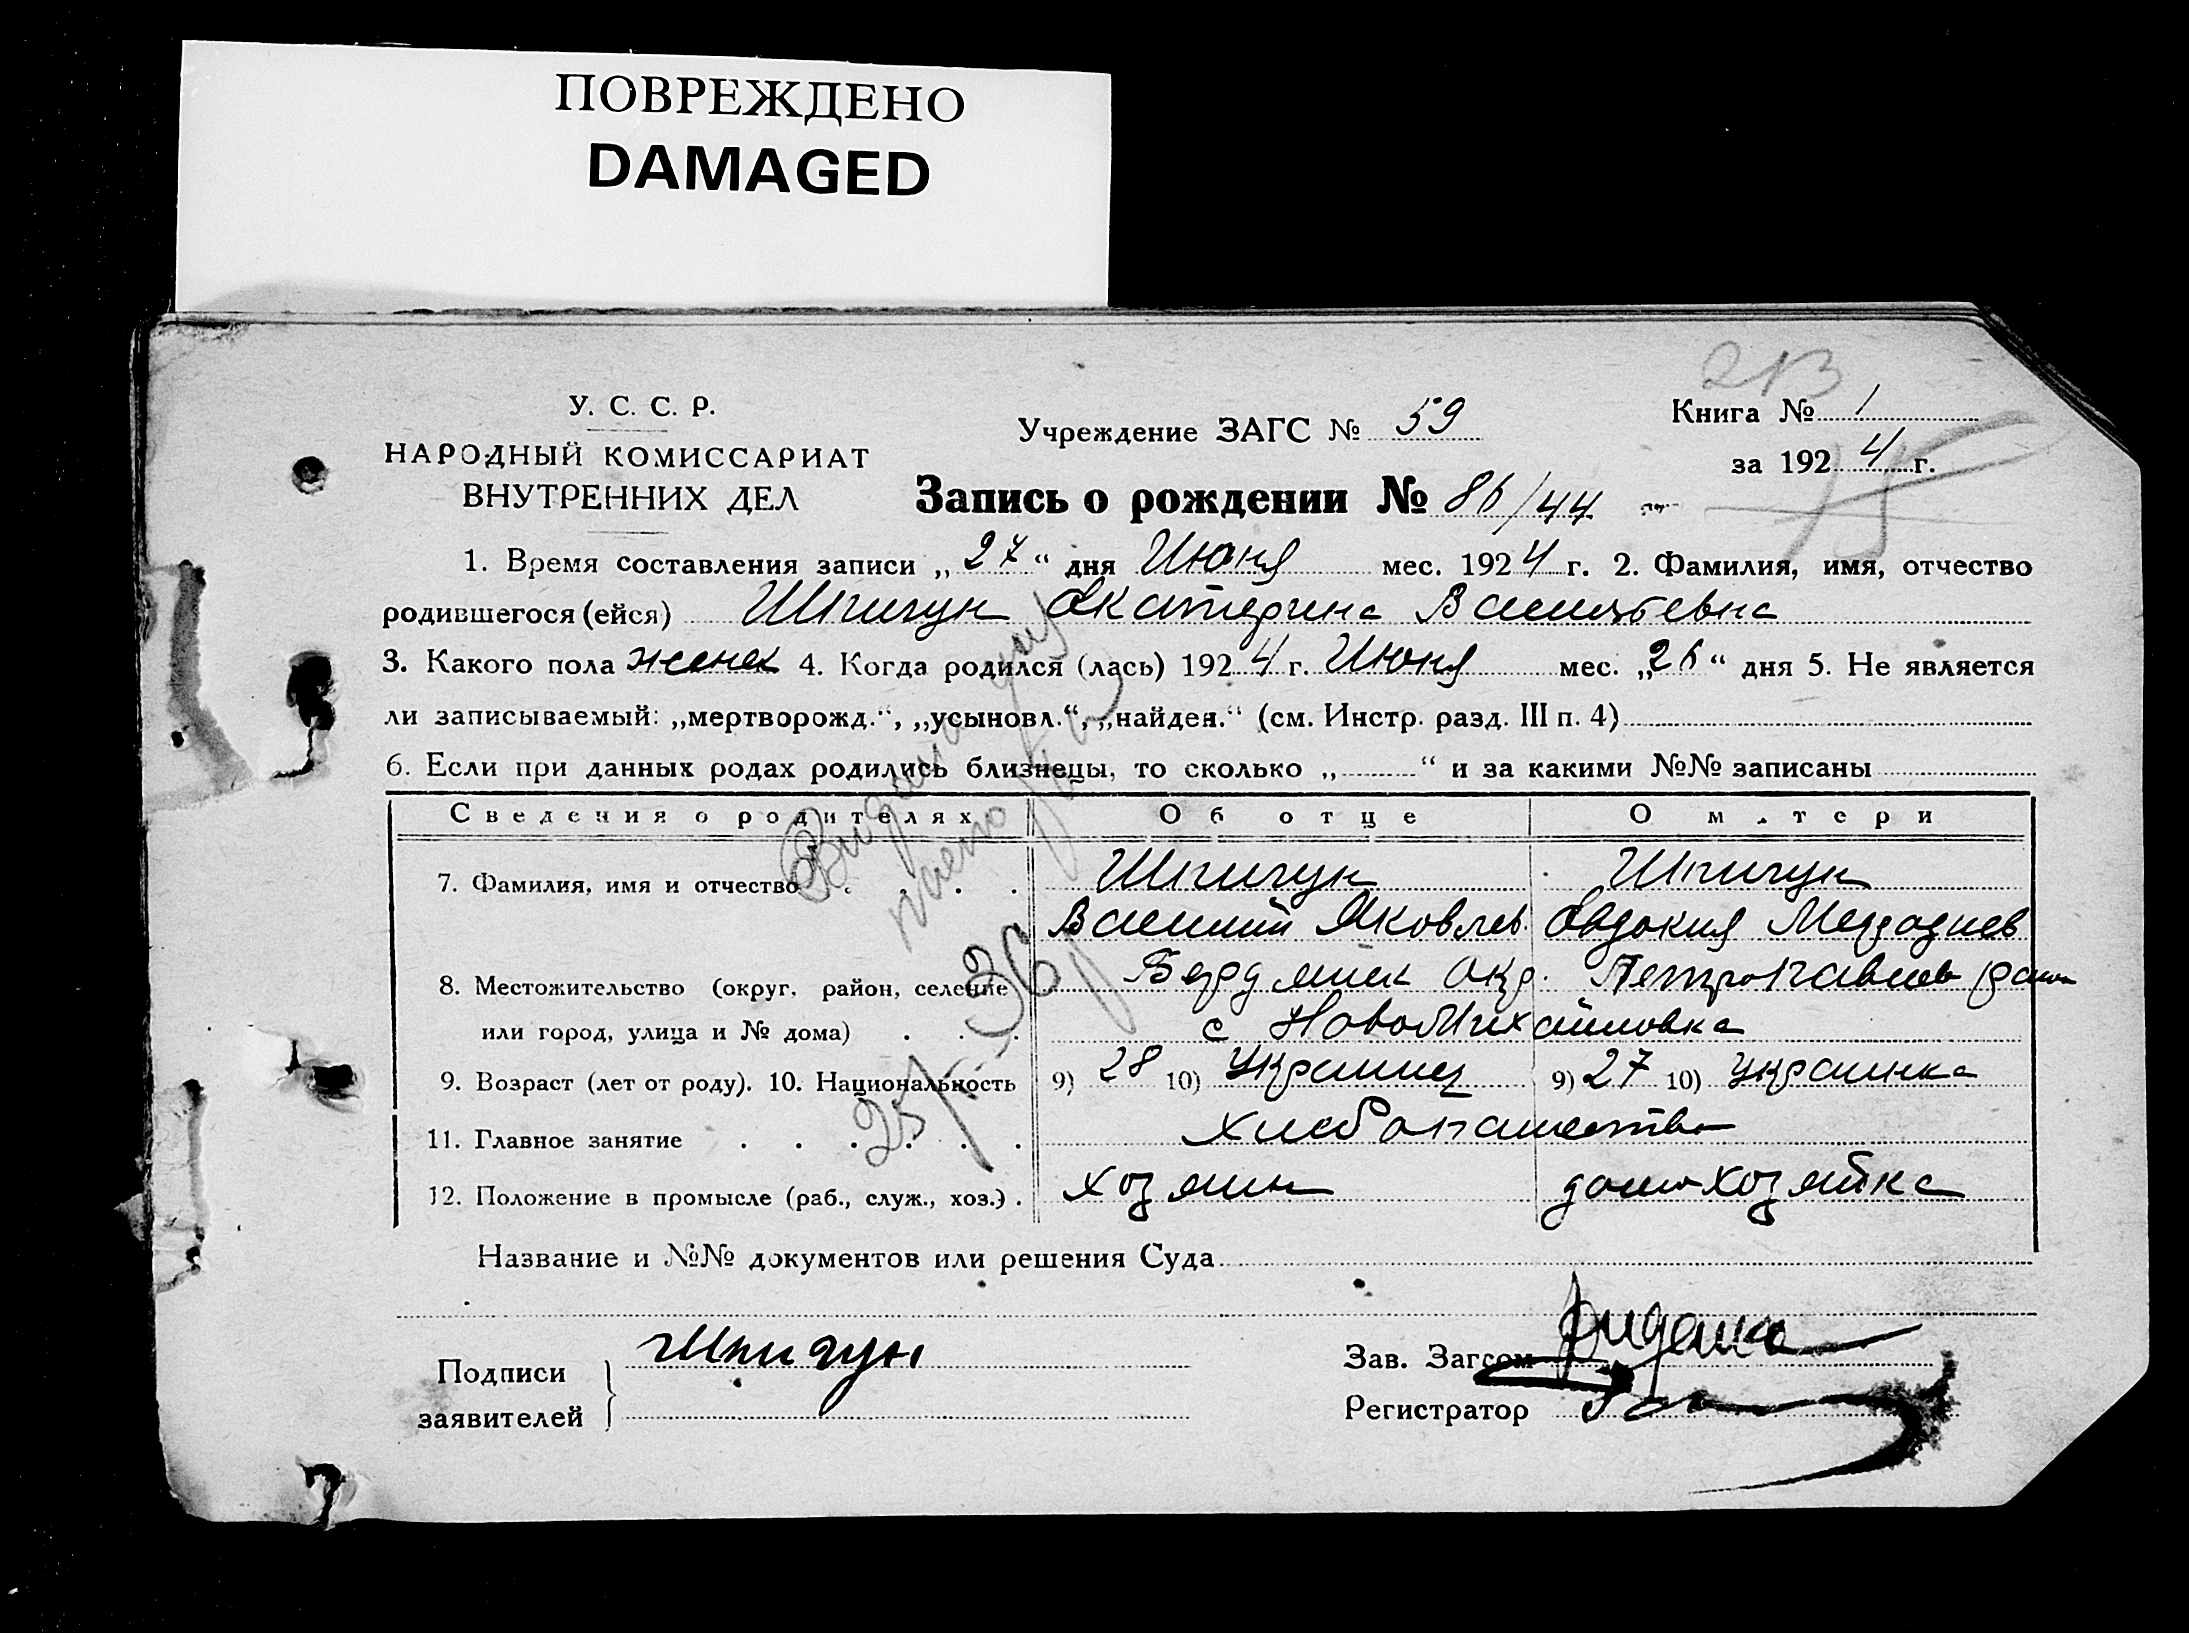 ПОВРЕЖДЕНО
DAMAGED
213
У. С. С. Р.
НАРОДНЫЙ КОМИССАРИАТ
ВНУТРЕННИХ ДЕЛ
Учреждение ЗАГС № 59
Книга № 1
за 1924 г.
75
Запись о рождении № 86/44
1. Время составления записи „27“ дня Июня мес. 1924 г. 2. Фамилия, имя, отчество
родившегося (ейся) Шпигун Екатерина Васильевна
3. Какого пола женск 4. Когда родился (лась) 1924 г. Июня мес. „26“ дня 5. Не является
ли записываемый: „мертворожд.“, „усыновл.“, „найден.“ (см. Инстр. разд. III п. 4)
6. Если при данных родах родились близнецы, то сколько „ “ и за какими №№ записаны
Сведения о родителях Об отце О матери
7. Фамилия, имя и отчество Шпигун Шпигун
Василий Яковлев Евдокия
8. Местожительство (округ, район, селение Бердянск окр. Петропавлов район
или город, улица и № дома) с НовоМихайловка
9. Возраст (лет от роду). 10. Национальность 9) 28 10) Украинец 9) 27 10) украинка
11. Главное занятие хлебопашество
12. Положение в промысле (раб., служ., хоз.) хозяин домохозяйка
Видана
25/X-36р
Название и №№ документов или решения Суда
Подписи
заявителей
Шпигун
Зав. Загсом
Регистратор